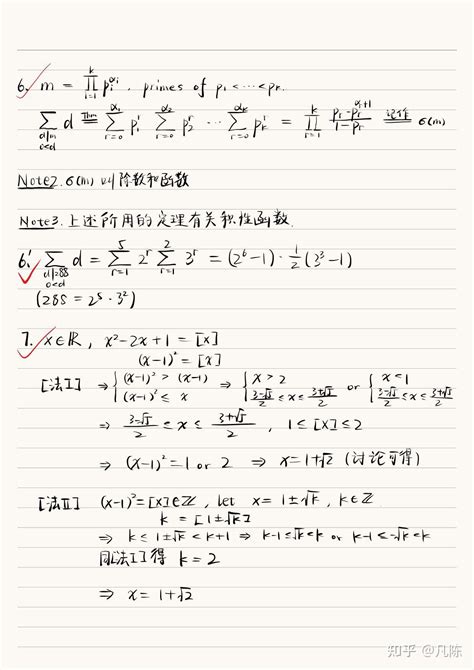 6. m = ∏_{i=1}^{k} p_i^{αi}, primes of p₁<…<p_k.
∑_{d|m, 0<d} d =(Thm) ∑_{r=0}^{α₁} p₁^r ∑_{r=0}^{α₂} p₂^r … ∑_{r=0}^{αk} p_k^r = ∏_{i=1}^{k} (p_r-p_r^{α+1})/(1-p_r) =(记作) σ(m)
Note2. σ(m) 叫除数和函数
Note3. 上述所用的定理有关积性函数.
6.' ∑_{d|288, 0<d} d = ∑_{r=1}^{5} 2^r ∑_{r=1}^{2} 3^r = (2⁶-1)·½(3³-1)
(288 = 2⁵·3²)
7. x∈ℝ, x²-2x+1 = [x]
(x-1)² = [x]
[法I] ⇒ { (x-1)² > (x-1) ; (x-1)² ≤ x ⇒ { x>2 ; (3-√5)/2 ≤ x ≤ (3+√5)/2 or { x<1 ; (3-√5)/2 ≤ x ≤ (3+√5)/2
⇒ (3-√5)/2 ≤ x ≤ (3+√5)/2, 1≤[x]≤2
⇒ (x-1)²=1 or 2 ⇒ x=1+√2 (讨论可得)
[法II] (x-1)²=[x]∈ℤ, let x=1±√k, k∈ℤ
k = [1±√k]
⇒ k≤1±√k<k+1 ⇒ k-1≤√k<k or k-1≤-√k<k
同[法I]得 k=2
⇒ x=1+√2
知乎 @凡陈